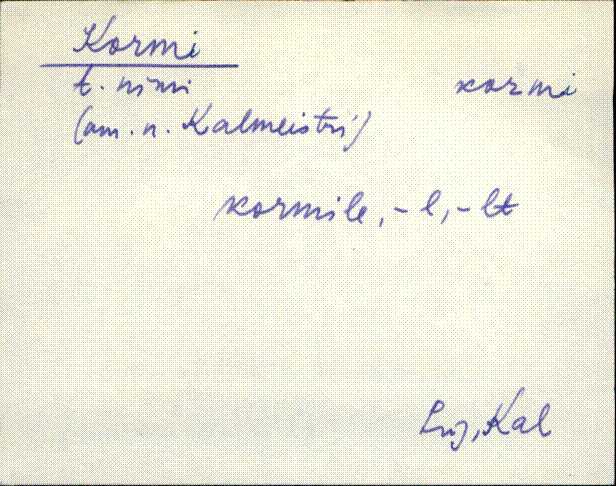 Kormi
t. nimi kormi
(am. n. Kalmeistri)
kormile, -l, -lt
Lüg, Kal